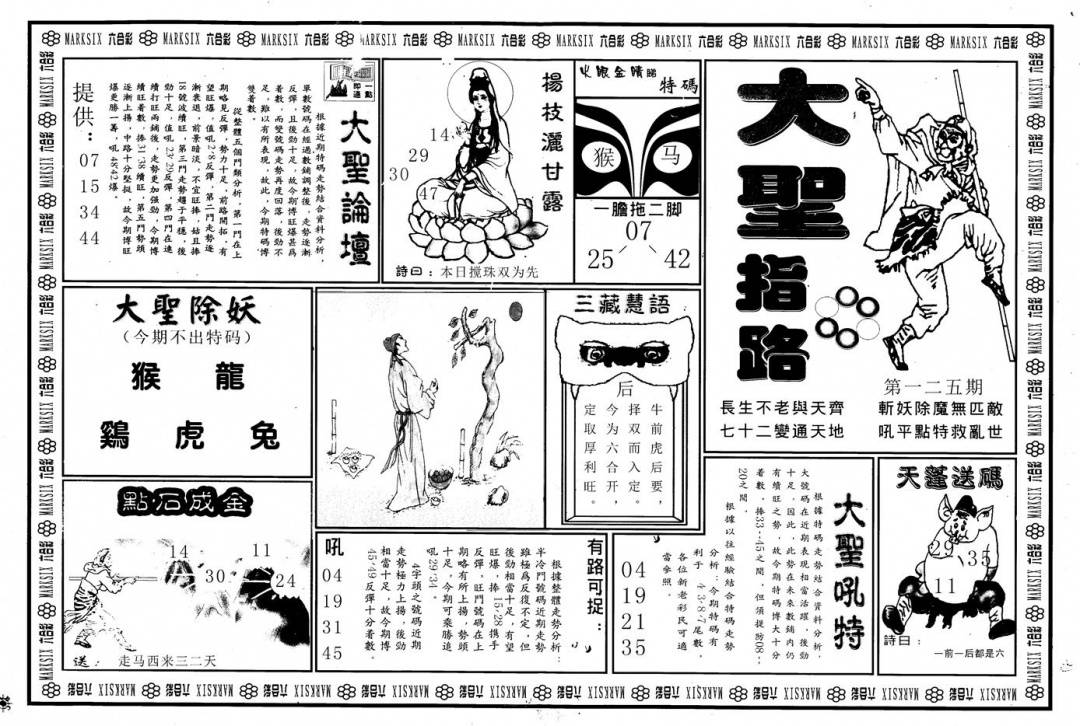 MARKSIX 六合彩 MARKSIX 六合彩 MARKSIX 六合彩 MARKSIX 六合彩 MARKSIX 六合彩 MARKSIX 六合彩 MARKSIX 六合彩 MARKSIX 六合彩 MARKSIX 六合彩 MARKSIX 六合彩
大聖指路
第一二五期
長生不老與天齊
七十二變通天地
斬妖除魔無匹敵
吼平點特救亂世
火眼金睛睇特碼
猴
马
一膽拖二脚
07
25
42
楊枝灑甘露
14
29
30
47
詩曰：本日搅珠双为先
一點即通
大聖論壇
根據近期特碼走勢結合資料分析，
單數號碼在經過數鋪調整後，走勢逐漸
反彈，且後勁十足，故今期博旺爆甚爲
着數，而雙號碼走勢再度回落，後勁不
足，難以有所表現，故此，今期特碼博
雙着數。
從整體五個門類分析，第一門在上
期略見反彈，勢力十足，前路開拓，有
望旺爆，值吼2·8反彈，第二門走勢逐
漸衰退，前景暗淡，不宜旺捧，姑且捧
18號波續旺，第三門走勢趨于平穩，後
勁十足，值吼23·29反彈，第四門在連
續打旺兩鋪後，走勢更加强勁，今期博
續旺着數，捧31·38續旺，第五門勢頭
逐漸上揚，中路十分堅挺，故今期博旺
爆更勝一籌，吼48·42爆。
提供：
07
15
34
44
大聖除妖
（今期不出特码）
猴 龍
鷄 虎 兔
三藏慧語
后
牛前虎后要，
择双而入定。
今为六合开，
定取厚利旺。
點石成金
14
11
30
24
送：走马西来三二天
有路可捉：
根據整體走勢分析：
半冷門號碼近期走勢
雖極爲反復不定，但
後勁相當十足，有望
旺爆，捧15·28携手
反彈，旺門號碼在上
期略有所上揚，勢頭
十足，今期可乘勝追
吼29·34。
4字頭之號碼近期
走勢極力上揚，後勁
相當十足，故今期博
45·49反彈十分着數。
吼
04
19
31
45
大聖吼特
根據特碼走勢結合資料分析，
大號碼在近期表現相當活躍，後勁
十足，因此，此勢在未來數鋪内仍
有續旺之勢，故今期特碼博大十分
着數，捧33--45之間，但須提防08--
20之間。
根據以往經驗結合特碼走勢
分析：今期特碼有
利于 4·3·8·7尾數。
各位新老彩民可適
當參照。
04
19
21
35
天蓬送碼
29
35
11
詩曰：
一前一后都是六